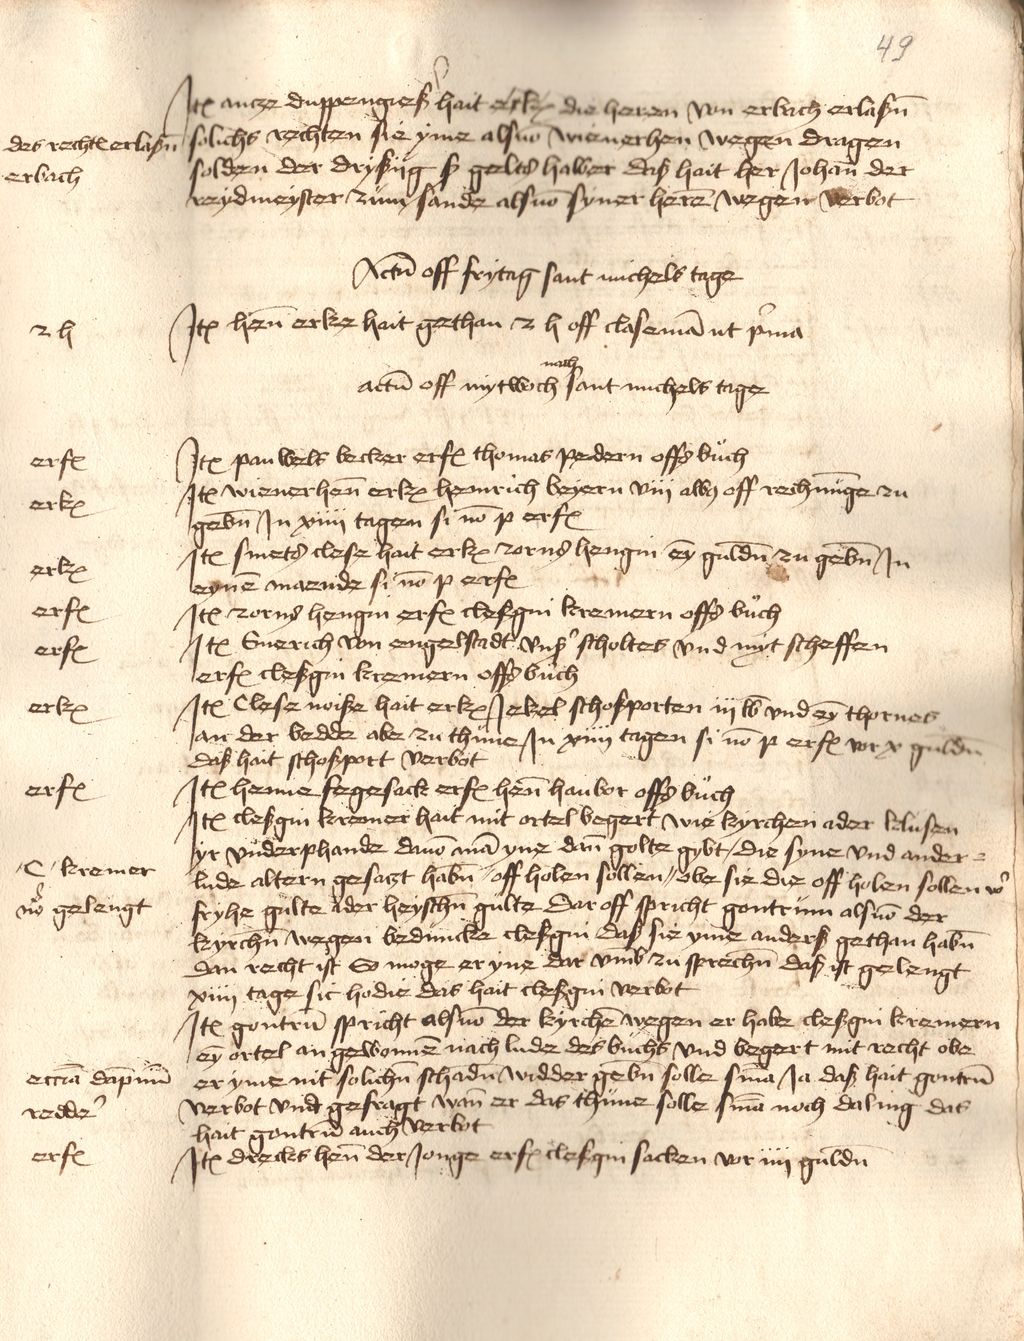 49
Itꝫ antze duppengieß hait erkꝫ die heren von erbach erlaßn̄
des rechtꝫ erlaßn̄ solichs rechten sie yme alsūo wienerhen wegen dragen
erbach solden der dryßig ß gelts haber daß hait her Johan̄ der
reydmeyster zūm sande alsūo syner herē wegen verbot
Actū off frytag sant michels tage
2 h Itꝫ hen̄ erke hait gethan 2 h off clasemā ut p̄ma
nach
actū off mytwoch sant michels tage
erfꝫ Itꝫ pauwels becker erfꝫ thomas pedern offs bůch
erkꝫ Itꝫ wienerhen̄ erkꝫ heinrich beyern viii alb9 off rechnūge zu
gebn̄ In xiiii tagen si nō p erfꝫ
erkꝫ Itꝫ smets clese hait erkꝫ zorns hengin eȳ guldn̄ zu gebn̄ In
eynē maende si nō p erfꝫ
erfꝫ Itꝫ zorns hengin erfꝫ cleßgin kremern offs bůch
erfꝫ Itꝫ Emerich von engelstadt vnß' scholtes vnd myt scheffen
erfꝫ cleßgin kremern offs bůch
erkꝫ Itꝫ Clese noiße hait erkꝫ Jekel schoßporten iij lb vnd eȳ thornes
an der bedde abe zu thūne In xiiii tagen si nō p erfꝫ vor x guldn̄
daß hait schoßport verbot
erfꝫ Itꝫ henne fegesack erfꝫ hen̄ haubor offs bůch
Itꝫ cleßgin kremer hait mit ortel begert wie kyrchen ader klusen
yr vnderphande davō mā yne dan̄ golte gybt / die syne vnd ander
C kremer lude altern gesatzt habn̄ / off holen sollen / obe sie die off holen sollen vo'
no gelengt fryhe gulte ader heyschn̄ gulte Dar off spricht gontrūm alsūo der
kyrchn̄ wegen beduncke cleßgin daß sie yme anders gethan habn̄
dan recht ist So moge er yne dar vmb zu sprechn̄ daß ist gelengt
xiiii tage sic hodie das hait cleßgin verbot
Itꝫ gontrū spricht alsūo der kyrchē wegen er habe cleßgin kremern
eȳ ortel an gewonnē nach lude des bůchs vnd begert mit recht obe
er yme nit solichn̄ schadn̄ widder gebn̄ solle snīa Ja daß hait gontrū
redde' verbot vnd gefragt wan̄ er das thūne solle snīa noch daling das
hait gontrū auch verbot
erfꝫ Itꝫ drecks hen̄ der Jonge erfꝫ cleßgin sacken vor iiii guldn̄